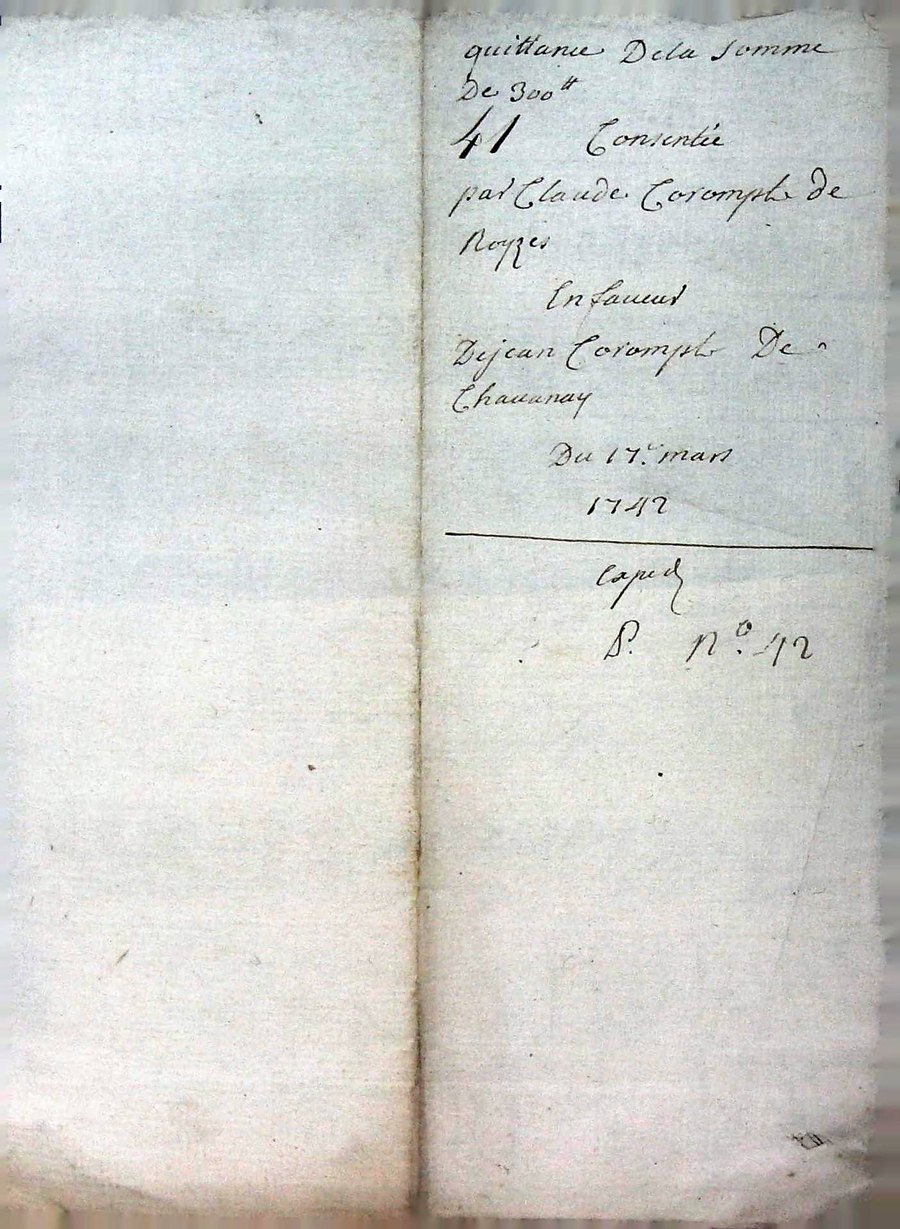 quittance De la Somme
De 300 ₶
41 Consentie
par Claude Coromph de
Royzes
En faueur
De jean Coromph De
Chauanay
Du 17e. mars
1742
Exped
No. 42